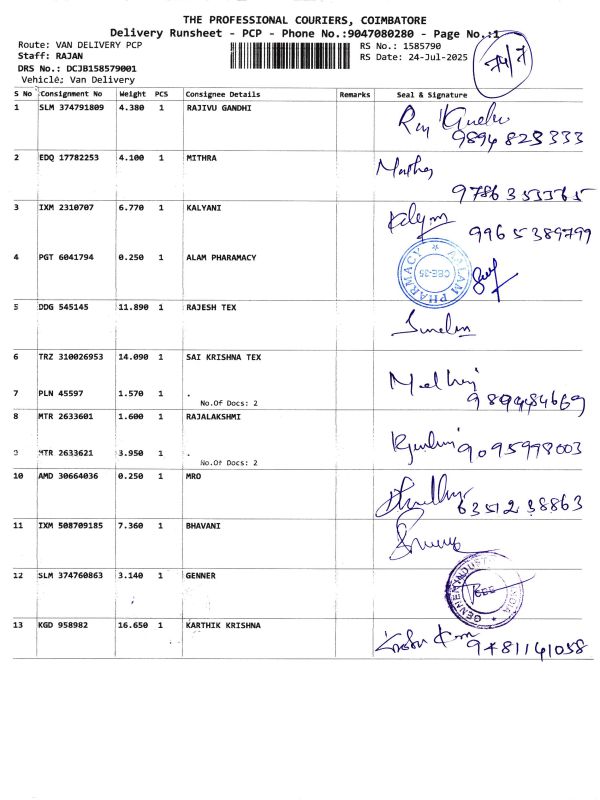 THE PROFESSIONAL COURIERS, COIMBATORE
Delivery Runsheet - PCP - Phone No.:9047080280 - Page No.:1
Route: VAN DELIVERY PCP RS No.: 1585790
Staff: RAJAN RS Date: 24-Jul-2025
DRS No.: DCJB158579001
Vehicle: Van Delivery
74/7
S No Consignment No Weight PCS Consignee Details Remarks Seal & Signature
1 SLM 374791809 4.380 1 RAJIVU GANDHI
9894 823 333
2 EDQ 17782253 4.100 1 MITHRA
9786353365
3 IXM 2310707 6.770 1 KALYANI Kalyani
9965389799
4 PGT 6041794 0.250 1 ALAM PHARAMACY
ALLAM PHARMACY * CBE-35
5 DDG 545145 11.890 1 RAJESH TEX
6 TRZ 310026953 14.090 1 SAI KRISHNA TEX
7 PLN 45597 1.570 1 . 9894484669
No.Of Docs: 2
8 MTR 2633601 1.600 1 RAJALAKSHMI
9 MTR 2633621 3.950 1 . 9095998003
No.Of Docs: 2
10 AMD 30664036 0.250 1 MRO
63512 38863
11 IXM 508709185 7.360 1 BHAVANI
12 SLM 374760863 3.140 1 GENNER
13 KGD 958982 16.650 1 KARTHIK KRISHNA
9781141058